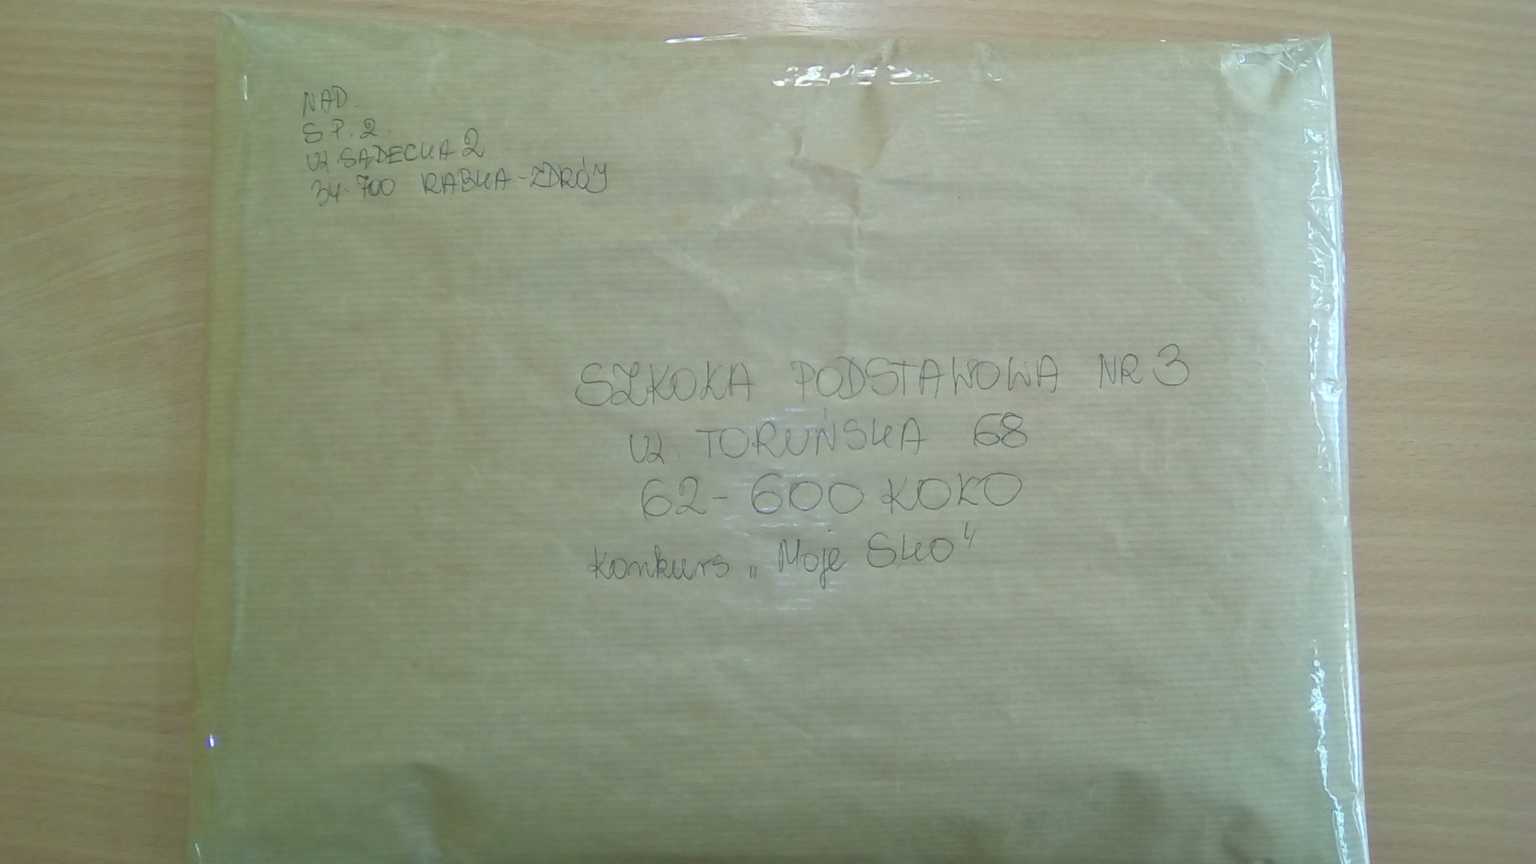 NAD.
S P. 2.
Ul. SĄDECKA 2
34-700 RABKA-ZDRÓJ
SZKOŁA PODSTAWOWA NR 3
Ul. TORUŃSKA 68
62-600 KOŁO
Konkurs „Moje SKO"